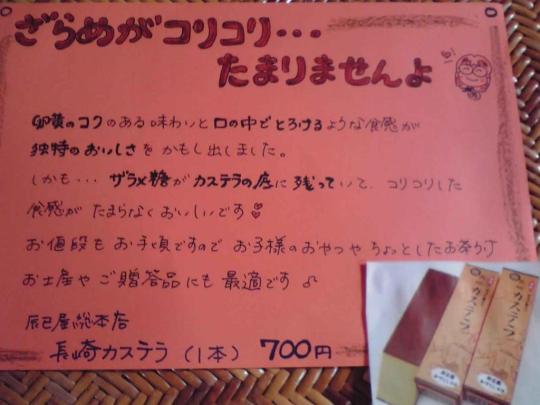 ざらめがコリコリ・・・
たまりませんよ
卵黄のコクのある味わいと口の中でとろけるような食感が
独特のおいしさをかもし出しました。
しかも・・・ ザラメ糖がカステラの底に残っていて、コリコリした
食感がたまらなくおいしいです♡
お値段もお手頃ですのでお子様のおやつやちょっとしたお茶うけ
お土産やご贈答品にも最適です♪
辰巳屋総本店
長崎カステラ(1本) 700円
カステラ
カステラ